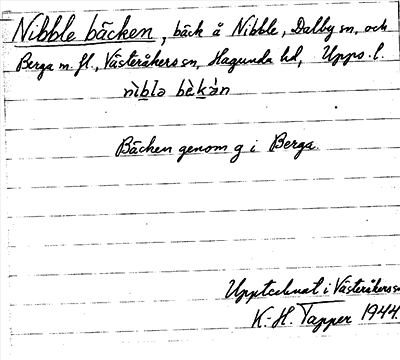 Nibble bäcken, bäck å Nibble, Dalby sn, och
Berga m. fl., Västeråkers sn, Hagunda hd, Upps. l.
nìblə bèkàn
Bäcken genom g i Berga.
Upptecknat i Västeråkers sn
K.-H. Tapper 1944.